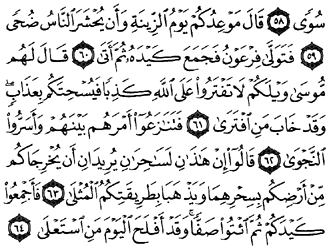 سُوًى ٥٨ قَالَ مَوْعِدُكُمْ يَوْمُ الزِّينَةِ وَأَن يُحْشَرَ النَّاسُ ضُحًى
٥٩ فَتَوَلَّىٰ فِرْعَوْنُ فَجَمَعَ كَيْدَهُ ثُمَّ أَتَىٰ ٦٠ قَالَ لَهُم
مُّوسَىٰ وَيْلَكُمْ لَا تَفْتَرُوا عَلَى اللَّهِ كَذِبًا فَيُسْحِتَكُم بِعَذَابٍ ۖ
وَقَدْ خَابَ مَنِ افْتَرَىٰ ٦١ فَتَنَازَعُوا أَمْرَهُم بَيْنَهُمْ وَأَسَرُّوا
النَّجْوَىٰ ٦٢ قَالُوا إِنْ هَٰذَانِ لَسَاحِرَانِ يُرِيدَانِ أَن يُخْرِجَاكُم
مِّنْ أَرْضِكُم بِسِحْرِهِمَا وَيَذْهَبَا بِطَرِيقَتِكُمُ الْمُثْلَىٰ ٦٣ فَأَجْمِعُوا
كَيْدَكُمْ ثُمَّ ائْتُوا صَفًّا ۚ وَقَدْ أَفْلَحَ الْيَوْمَ مَنِ اسْتَعْلَىٰ ٦٤